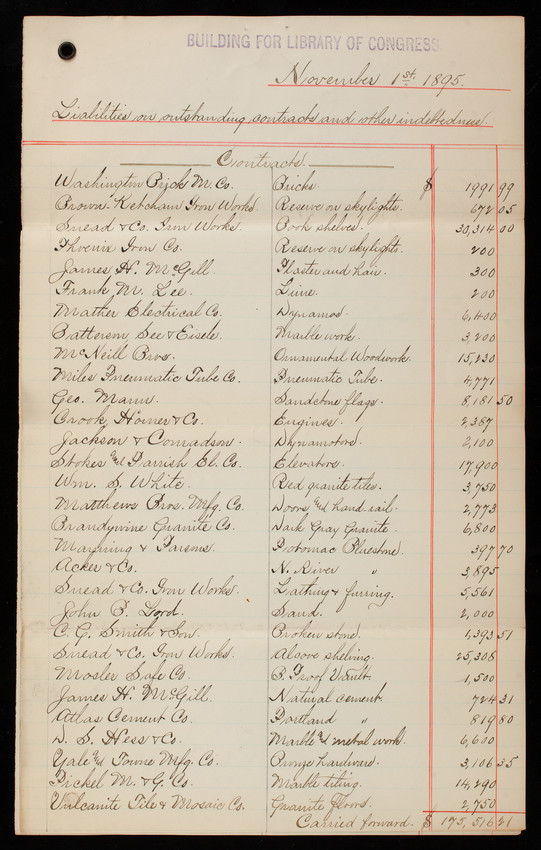 BUILDING FOR LIBRARY OF CONGRESS.
November 1st. 1895.
Liabilities on outstanding contracts and other indebtedness.
Contracts.
Washington Brick M. Co. Bricks. $ 1991 99
Brown-Ketcham Iron Works. Reserve on skylights. 672 05
Snead & Co. Iron Works. Book shelves. 30,314 00
Phoenix Iron Co. Reserve on skylight. 200
James H. McGill. Plaster and hair. 300
Frank M. Lee. Lime. 200
Mather Electrical Co. Dynamos. 6,400
Batterson, See & Eisele. Marble work. 3,200
McNeill Bros. Ornamental Woodwork. 15,230
Miles Pneumatic Tube Co. Pneumatic Tube. 4,771
Geo. Mann. Sandstone flags. 8,181 50
Crook, Horner & Co. Engines. 2,387
Jackson & Conradson. Dynamotors. 2,100
Stokes and Parrish El. Co. Elevators. 17,900
Wm. S. White. Red granite tiles. 3,750
Matthews Bros. Mfg. Co. Doors and hand-rail. 2,773
Brandywine Granite Co. Dark Gray Granite. 6,800
Manning & Parsons. Potomac Bluestone. 397 70
Acker & Co. N. River " 3,895
Snead & Co. Iron Works. Lathing & furring. 5,561
John B. Lord. Sand. 2,000
C. G. Smith & Son. Broken stone. 1,393 51
Snead & Co. Iron Works. Alcove shelving. 25,308
Mosler Safe Co. B. Proof Vault. 1,500
James H. McGill. Natural cement. 724 31
Atlas Cement Co. Portland " 819 80
D. S. Hess & Co. Marble & metal work. 6,600
Yale and Towne Mfg. Co. Bronze hardware. 3,106 35
Pickel M. & G. Co. Marble tiling. 14,290
Vulcanite Tile & Mosaic Co. Granite Floors. 2,750
Carried forward. $ 175,516 21